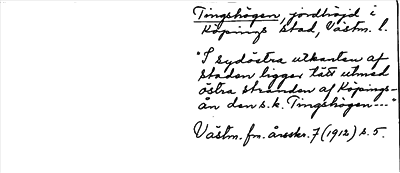 Tingshögen, jordhöjd i
Köpings stad, Västm. l.
"I sydöstra utkanten af
staden ligger tätt utmed
östra stranden af Köpings-
ån den s.k. Tingshögen..."
Västm. fm. årsskr. 7 (1912) s. 5.